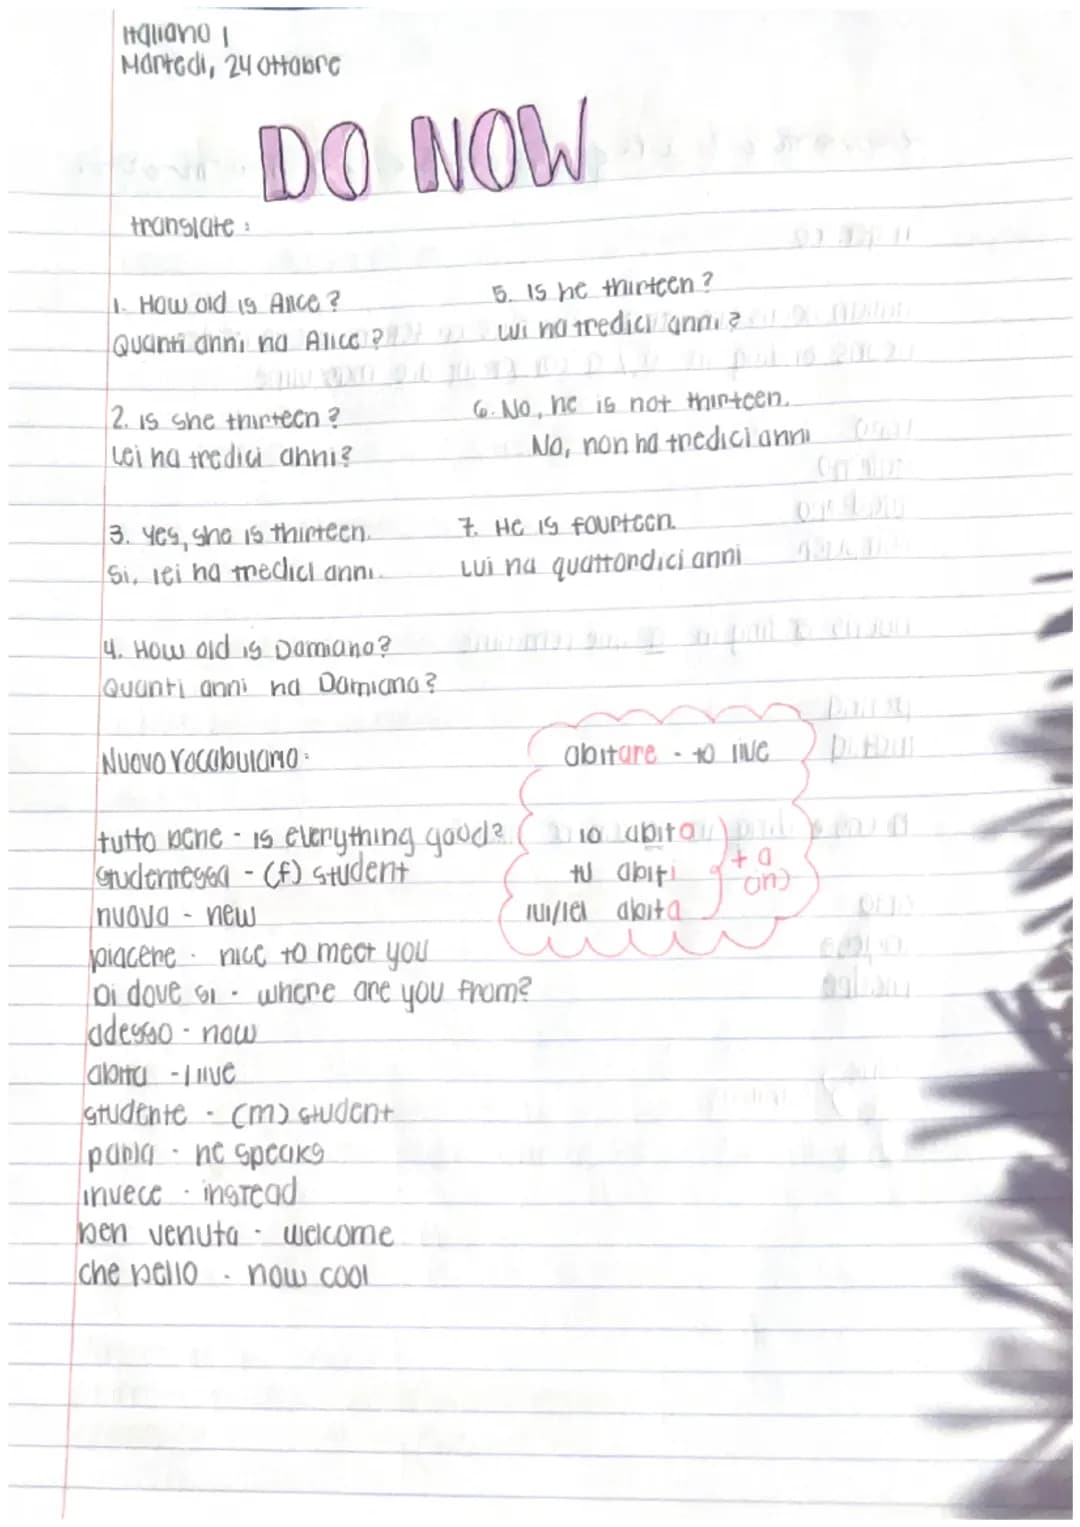 Italiano 1
Martedi, 24 ottobre
DO NOW
translate:
1. How old is Alice?
Quanti anni ha Alice?
2. is she thirteen?
Lei ha tredici anni?
3. Yes, she is thirteen.
Si, lei ha tredici anni.
4. How old is Damiano?
Quanti anni ha Damiano?
5. Is he thirteen?
Lui ha tredici anni?
6. No, he is not thirteen.
No, non ha tredici anni
7. He is fourteen.
Lui ha quattordici anni
Nuovo vocabulario:
tutto bene - is everything good?
studentessa - (f) student
nuova - new
piacere - nice to meet you
Di dove si - where are you from?
adesso - now
abita - I live
studente - (m) student
parla - he speaks
invece - instead
ben venuta - welcome
che bello - how cool
abitare - to live
io abito
tu abiti
lui/lei abita
+ a
(in)